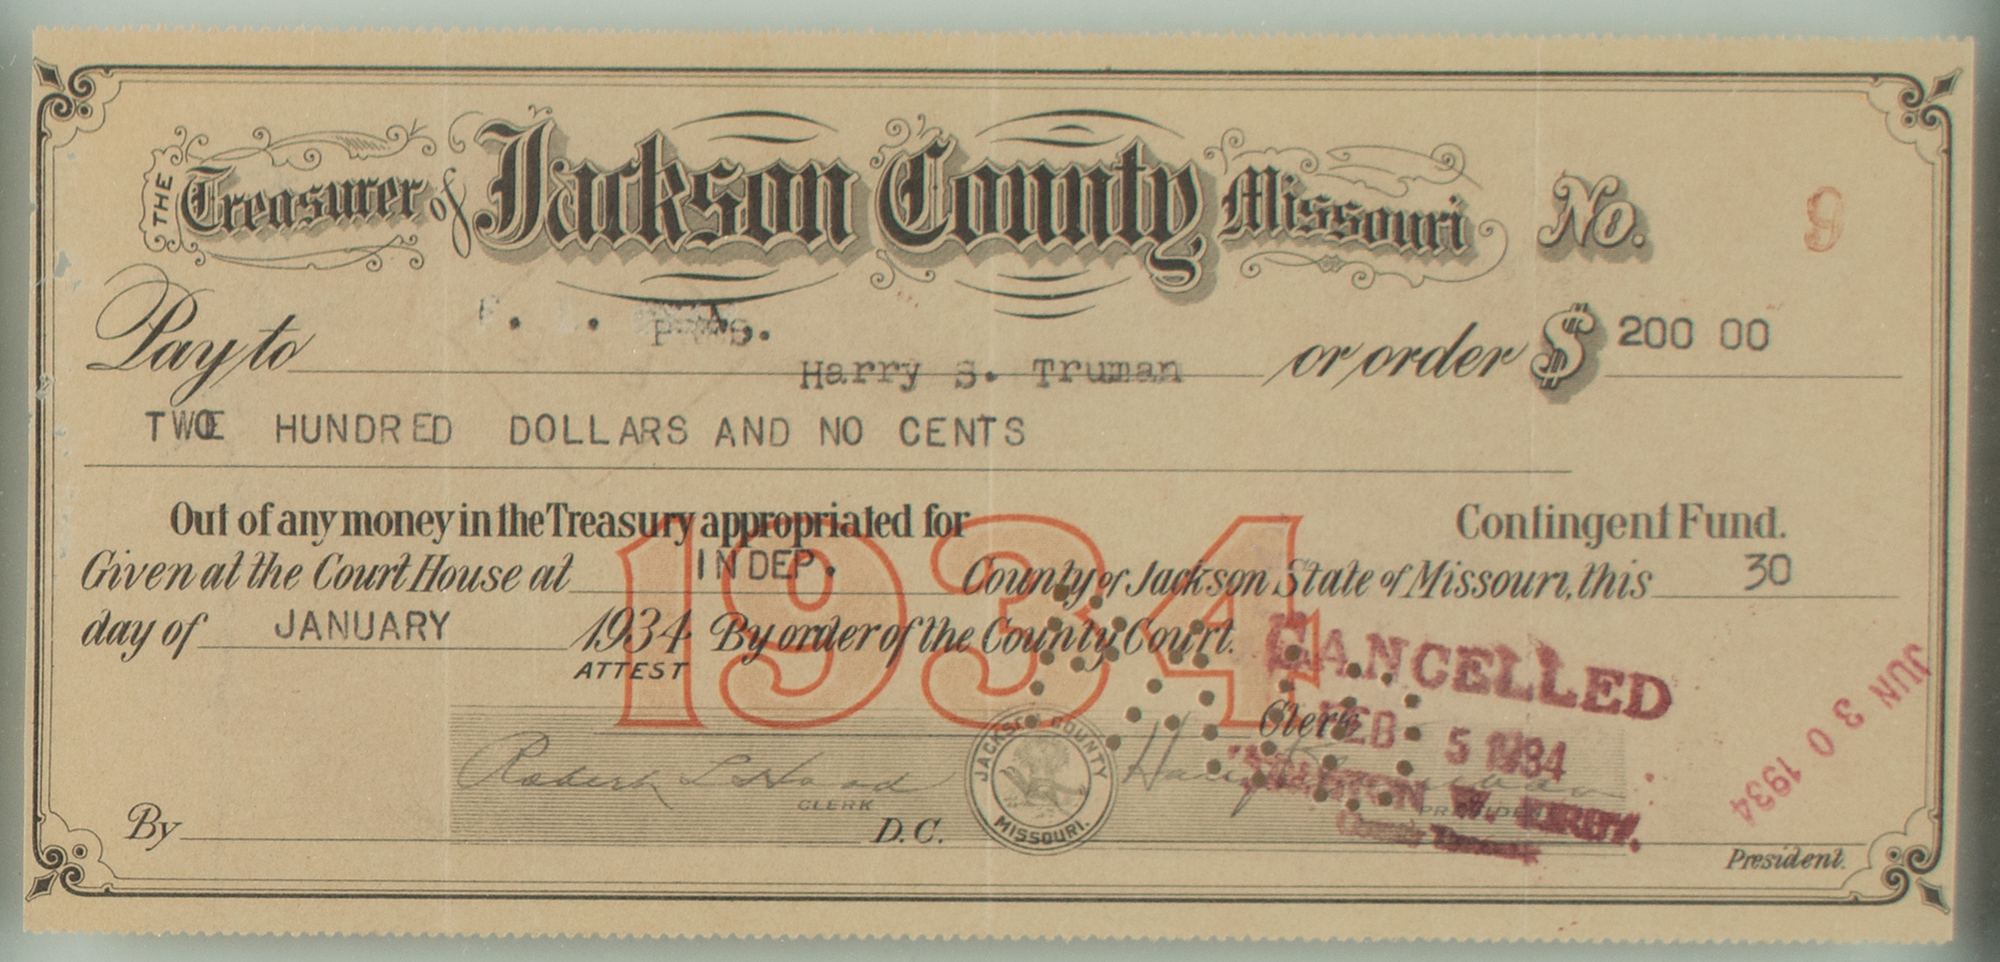 THE Treasurer of Jackson County Missouri No. 9
P. . PRES.
Pay to Harry S. Truman or order $ 200 00
TWO HUNDRED DOLLARS AND NO CENTS
Out of any money in the Treasury appropriated for Contingent Fund.
1934
Given at the Court House at INDEP. County of Jackson State of Missouri, this 30
day of JANUARY 1934 By order of the County Court.
ATTEST
CANCELLED
Clerk
FEB 5 1934
JUN 30 1934
Robert L Hood
CLERK
JACKSON COUNTY
MISSOURI.
Harry Truman
PRESIDENT
W. KIRBY.
County
By D.C.
President.